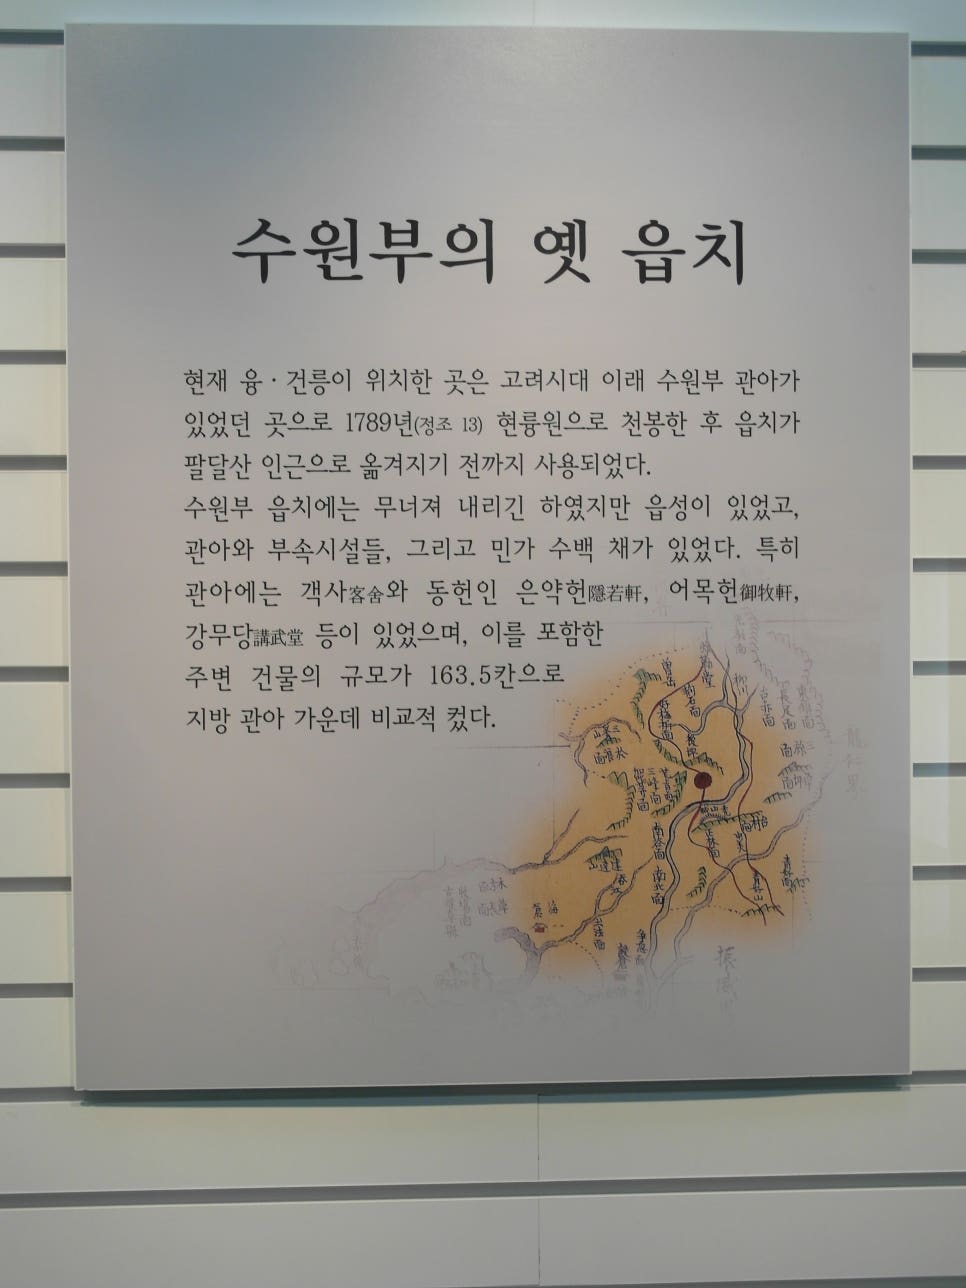 수원부의 옛 읍치
현재 융·건릉이 위치한 곳은 고려시대 이래 수원부 관아가
있었던 곳으로 1789년(정조 13) 현륭원으로 천봉한 후 읍치가
팔달산 인근으로 옮겨지기 전까지 사용되었다.
수원부 읍치에는 무너져 내리긴 하였지만 읍성이 있었고,
관아와 부속시설들, 그리고 민가 수백 채가 있었다. 특히
관아에는 객사客舍와 동헌인 은약헌隱若軒, 어목헌御牧軒,
강무당講武堂 등이 있었으며, 이를 포함한
주변 건물의 규모가 163.5칸으로
지방 관아 가운데 비교적 컸다.